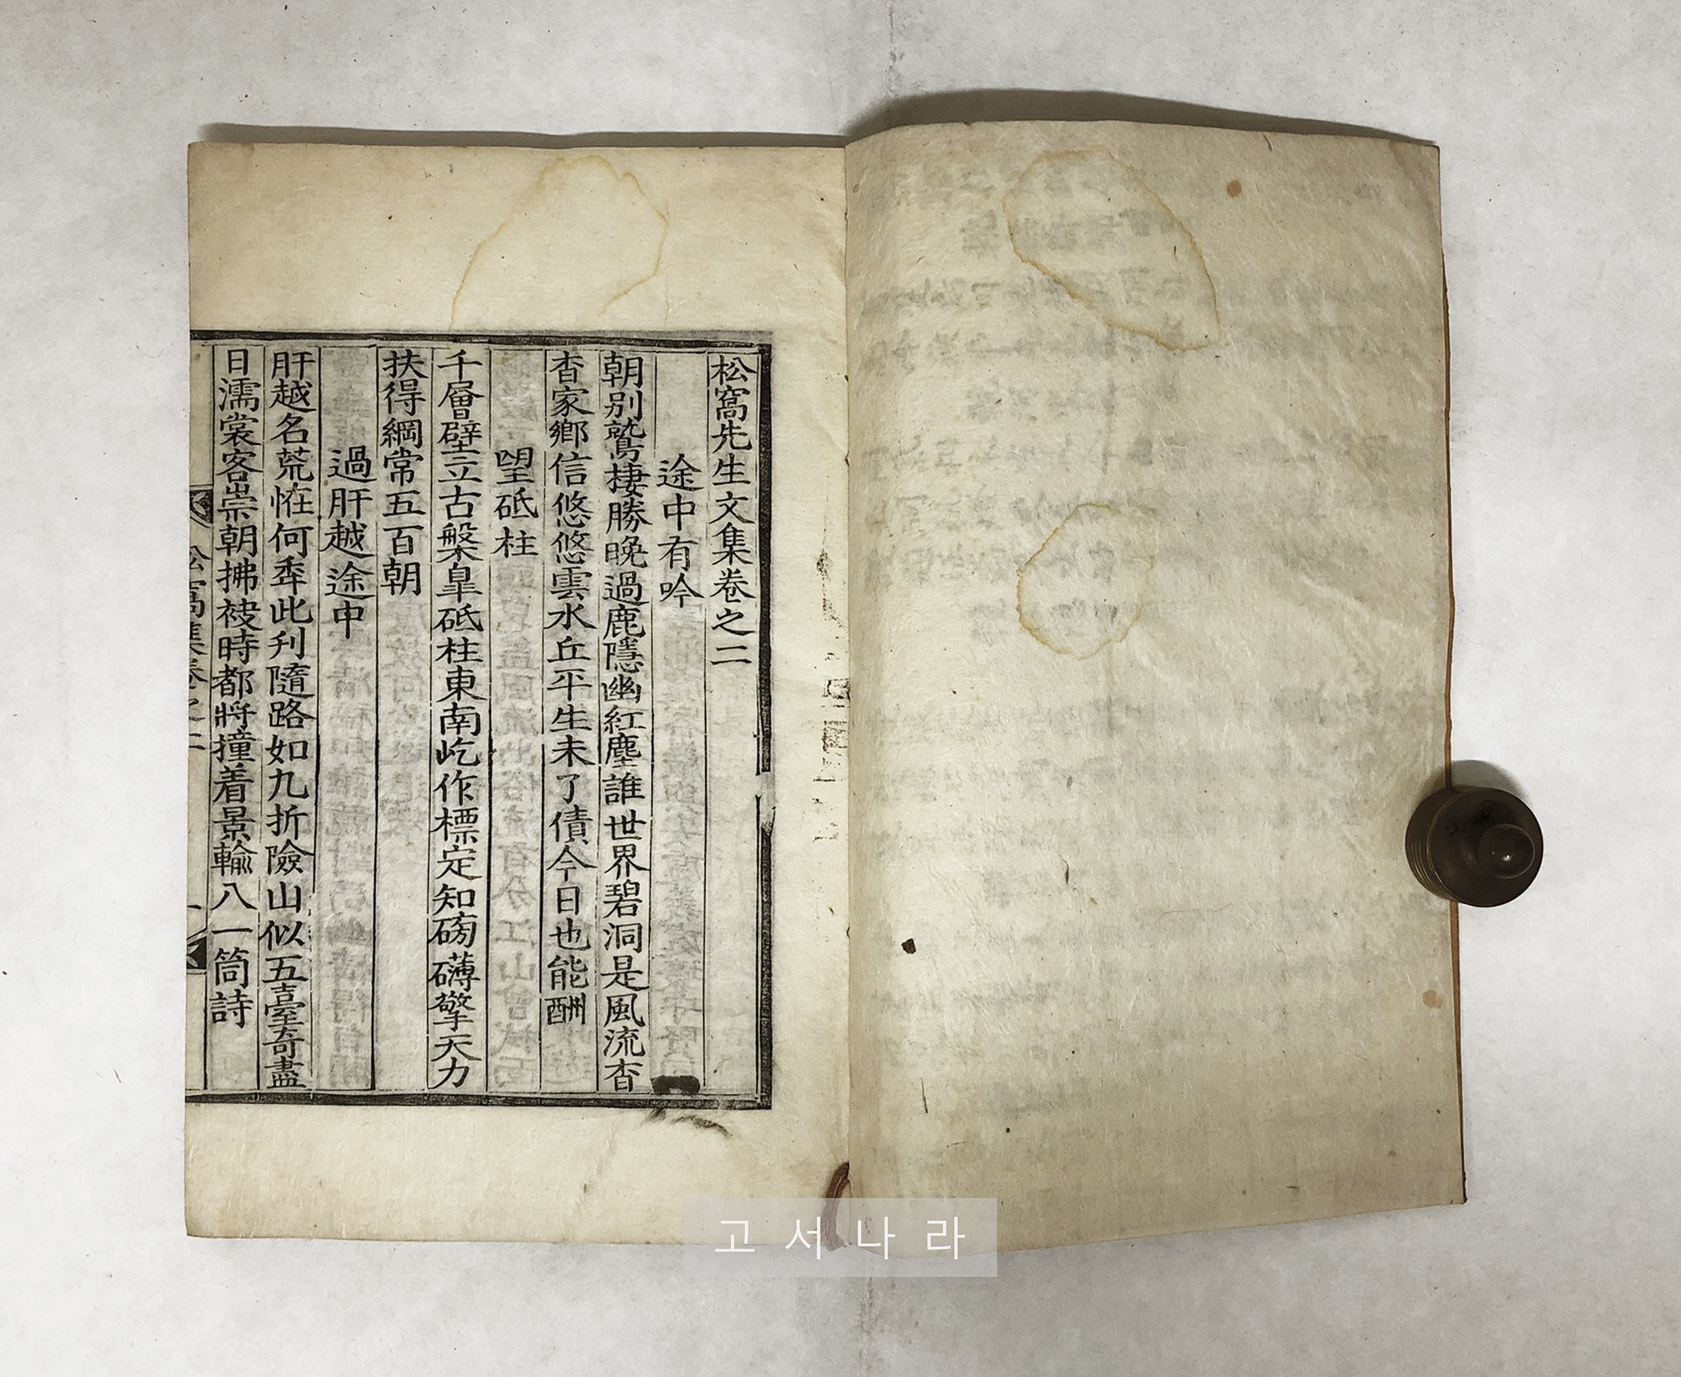 松窩先生文集卷之二
途中有吟
朝別鷲棲勝晚過鹿隱幽紅塵誰世界碧洞是風流杳
杳家鄉信悠悠雲水丘平生未了債今日也能酬
望砥柱
千層壁立古槃皐砥柱東南屹作標定知磅礴擎天力
扶得綱常五百朝
過肝越途中
肝越名荒恠何秊此刋隨路如九折險山似五臺奇盡
日濡裳客崇朝拂袚時都將撞着景輸八一筒詩
松窩集卷之二
一
고서나라